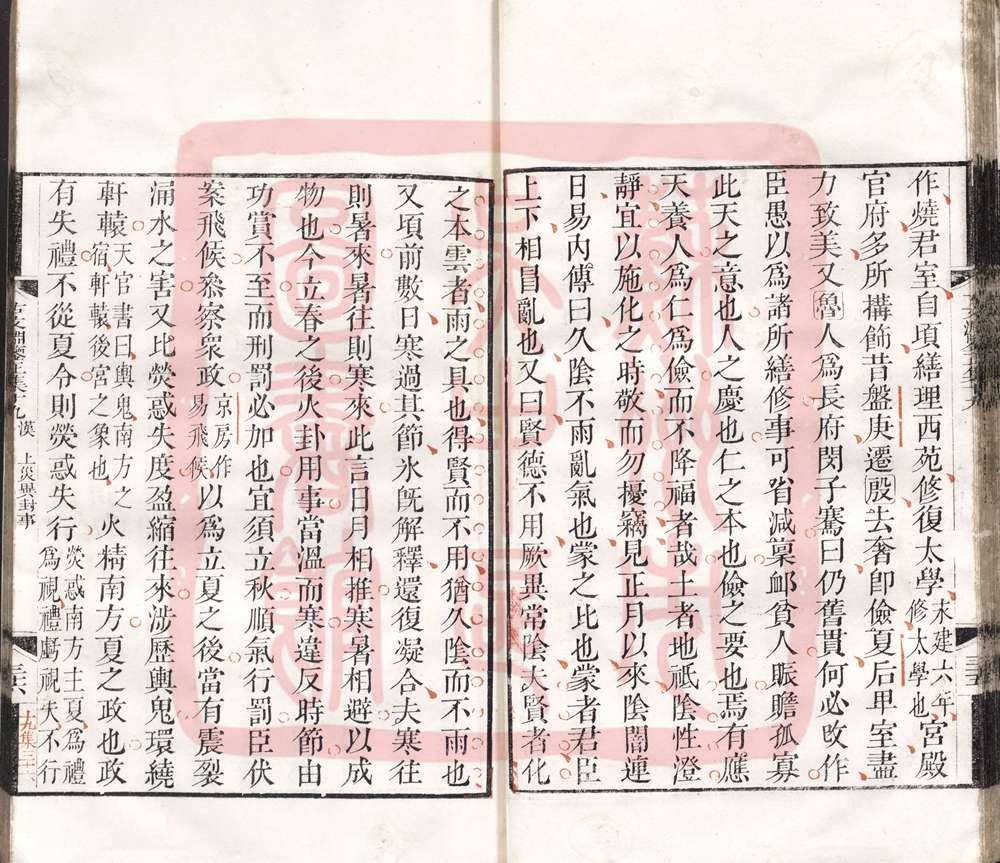 作燒君室自頃繕理西苑修復太學末建六年修太學也宮殿
官府多所搆飾昔盤庚遷殷去奢卽儉夏后卑室盡
力致美又魯人爲長府閔子騫曰仍舊貫何必改作
臣愚以爲諸所繕修事可省減稟卹貧人賑贍孤寡
此天之意也人之慶也仁之本也儉之要也焉有應
天養人爲仁爲儉而不降福者哉土者地祇陰性澄
靜宜以施化之時敬而勿擾竊見正月以來陰闇連
日易內傳曰久陰不雨亂氣也蒙之比也蒙者君臣
上下相冒亂也又曰賢德不用厥異常陰夫賢者化
之本雲者雨之具也得賢而不用猶久陰而不雨也
又頃前數日寒過其節氷旣解釋還復凝合夫寒往
則暑來暑往則寒來此言日月相推寒暑相避以成
物也今立春之後火卦用事當溫而寒違反時節由
功賞不至而刑罰必加也宜須立秋順氣行罰臣伏
案飛候參察衆政京房作易飛候以爲立夏之後當有震裂
涌水之害又比熒惑失度盈縮往來涉歷輿鬼環繞
軒轅天官書曰輿鬼南方之宿軒轅後宮之象也火精南方夏之政也政
有失禮不從夏令則熒惑失行熒惑南方主夏爲禮爲視禮虧視失不行
古文淵鑒正集十九 漢 上災異封事
三六